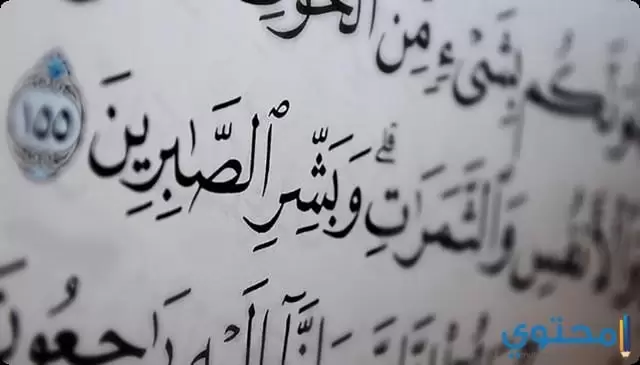 بِشَىْءٍ مِّنَ ٱلْخَوْفِ
وَٱلْأَنفُسِ وَٱلثَّمَرَٰتِ ۗ وَبَشِّرِ ٱلصَّٰبِرِينَ ١٥٥
وَإِنَّآ إِلَيْهِ رَٰجِعُونَ
محتوى